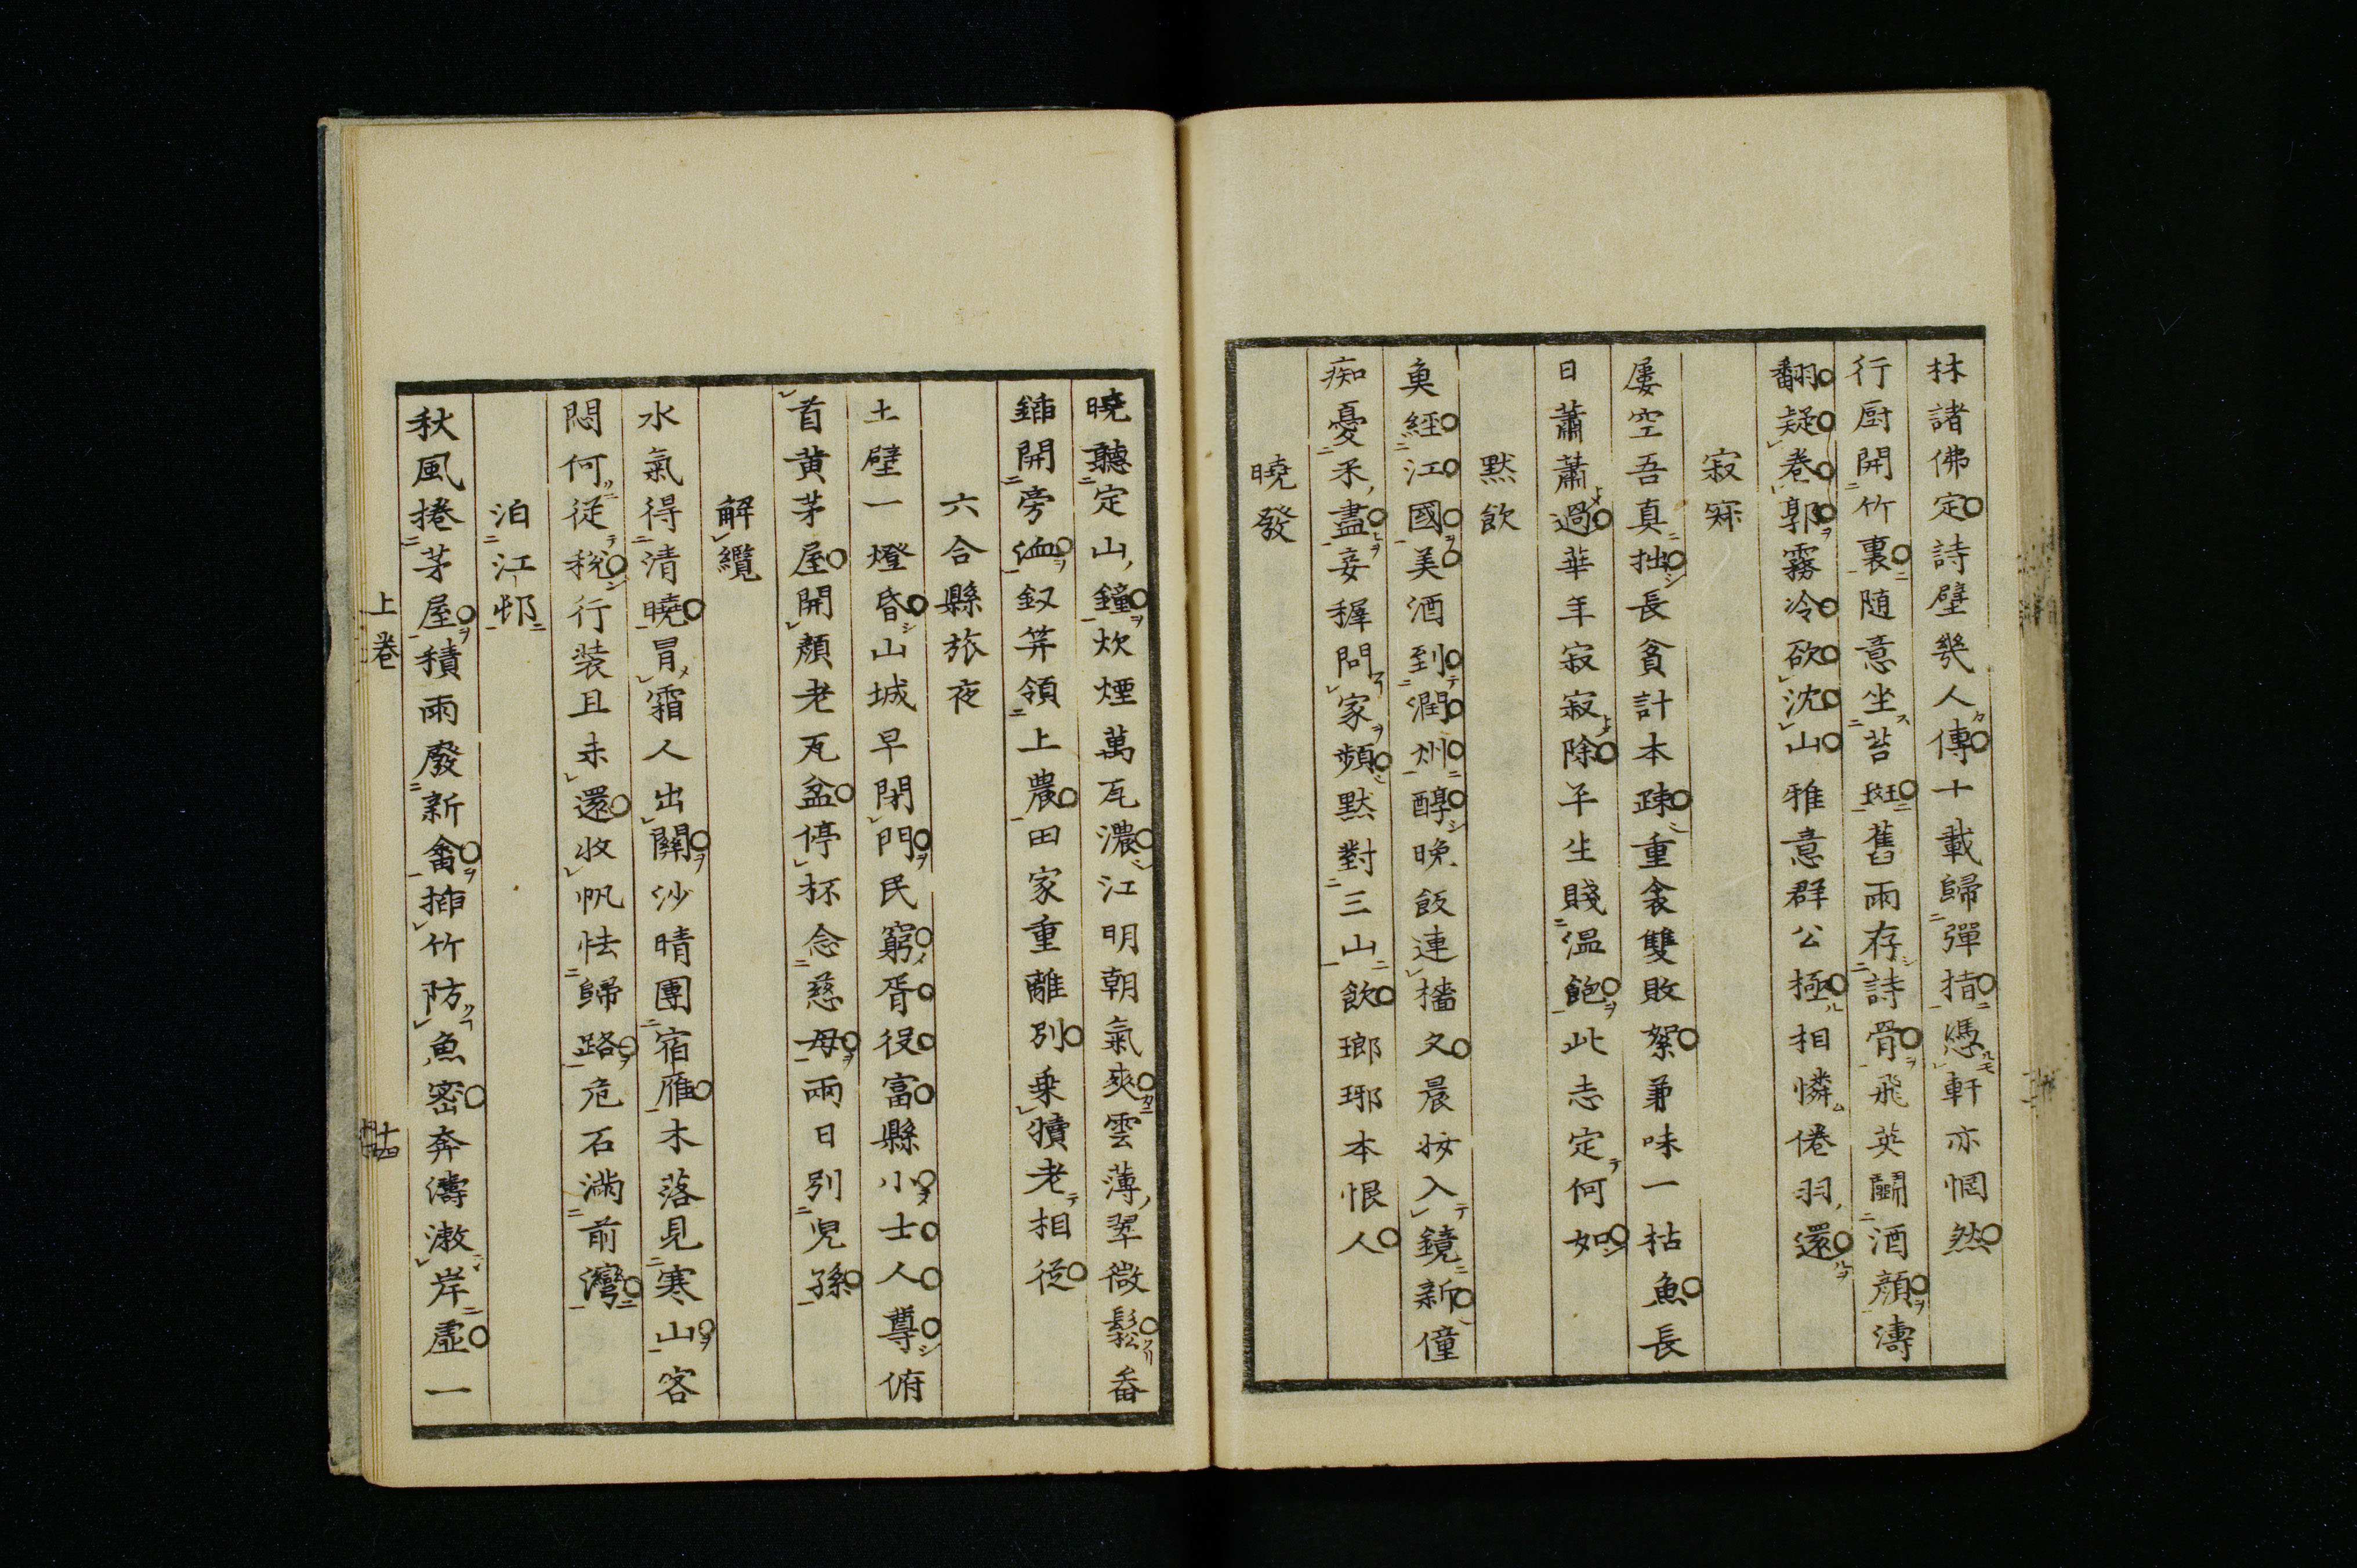 林諸佛定詩壁幾人傳十載歸彈指憑軒亦惘然
行厨開竹裏随意坐苔斑舊雨存詩骨飛英鬭酒顔濤
翻疑卷郭霧冷欲沈山雅意群公極相憐倦羽還
寂寞
屢空吾真拙長貧計本疎重衾雙敗絮兼味一枯魚長
日蕭蕭過華年寂寂除平生賤温飽此志定何如
默飲
奠經江國美酒到潤州醇晚飯連檣夕晨妝入鏡新僮
痴憂禾盡妾穉問家頻默對三山飲瑯琊本恨人
曉發
曉聽定山鐘炊煙萬瓦濃江明朝氣爽雲薄翠微鬆畚
鍤開旁洫釵笄領上農田家重離別乗犢老相從
六合縣旅夜
土壁一燈昏山城早閉門民窮胥役富縣小士人尊俯
首黄茅屋開顔老瓦盆停杯念慈母兩日別児孫
解纜
水氣得清曉冒霜人出關沙晴團宿雁木落見寒山客
悶何從税行装且未還收帆怯歸路危石満前灣
泊江邨
秋風捲茅屋積雨廢新畬插竹防魚密奔濤漱岸虚一
上卷
十四